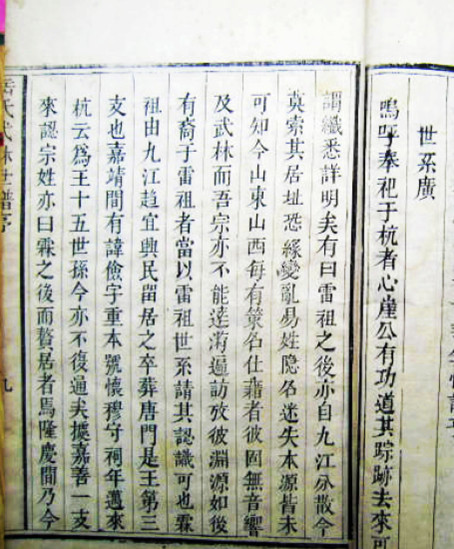 世系廣
嗚呼奉祀于杭者心崖公有功道其踪跡去來可
謂纖悉詳明矣有曰雷祖之後亦自九江分散今
莫索其居址恐緣變亂易姓隐名迷失本源皆未
可知今山東山西每有策名仕藉者彼固無音響
及武林而吾宗亦不能逹淯遍訪攷彼淵源如後
有裔于雷祖者當以雷祖世系請其認識可也霖
祖由九江趋宜興民留居之卒葬唐門是王第三
支也嘉靖間有諱儉字重本號懷穆守祠年邁來
杭云爲王十五世孫今亦不復通矣據嘉善一支
來認宗姓亦曰霖之後而贅居者馬隆慶間乃今
岳氏武林世譜序
九